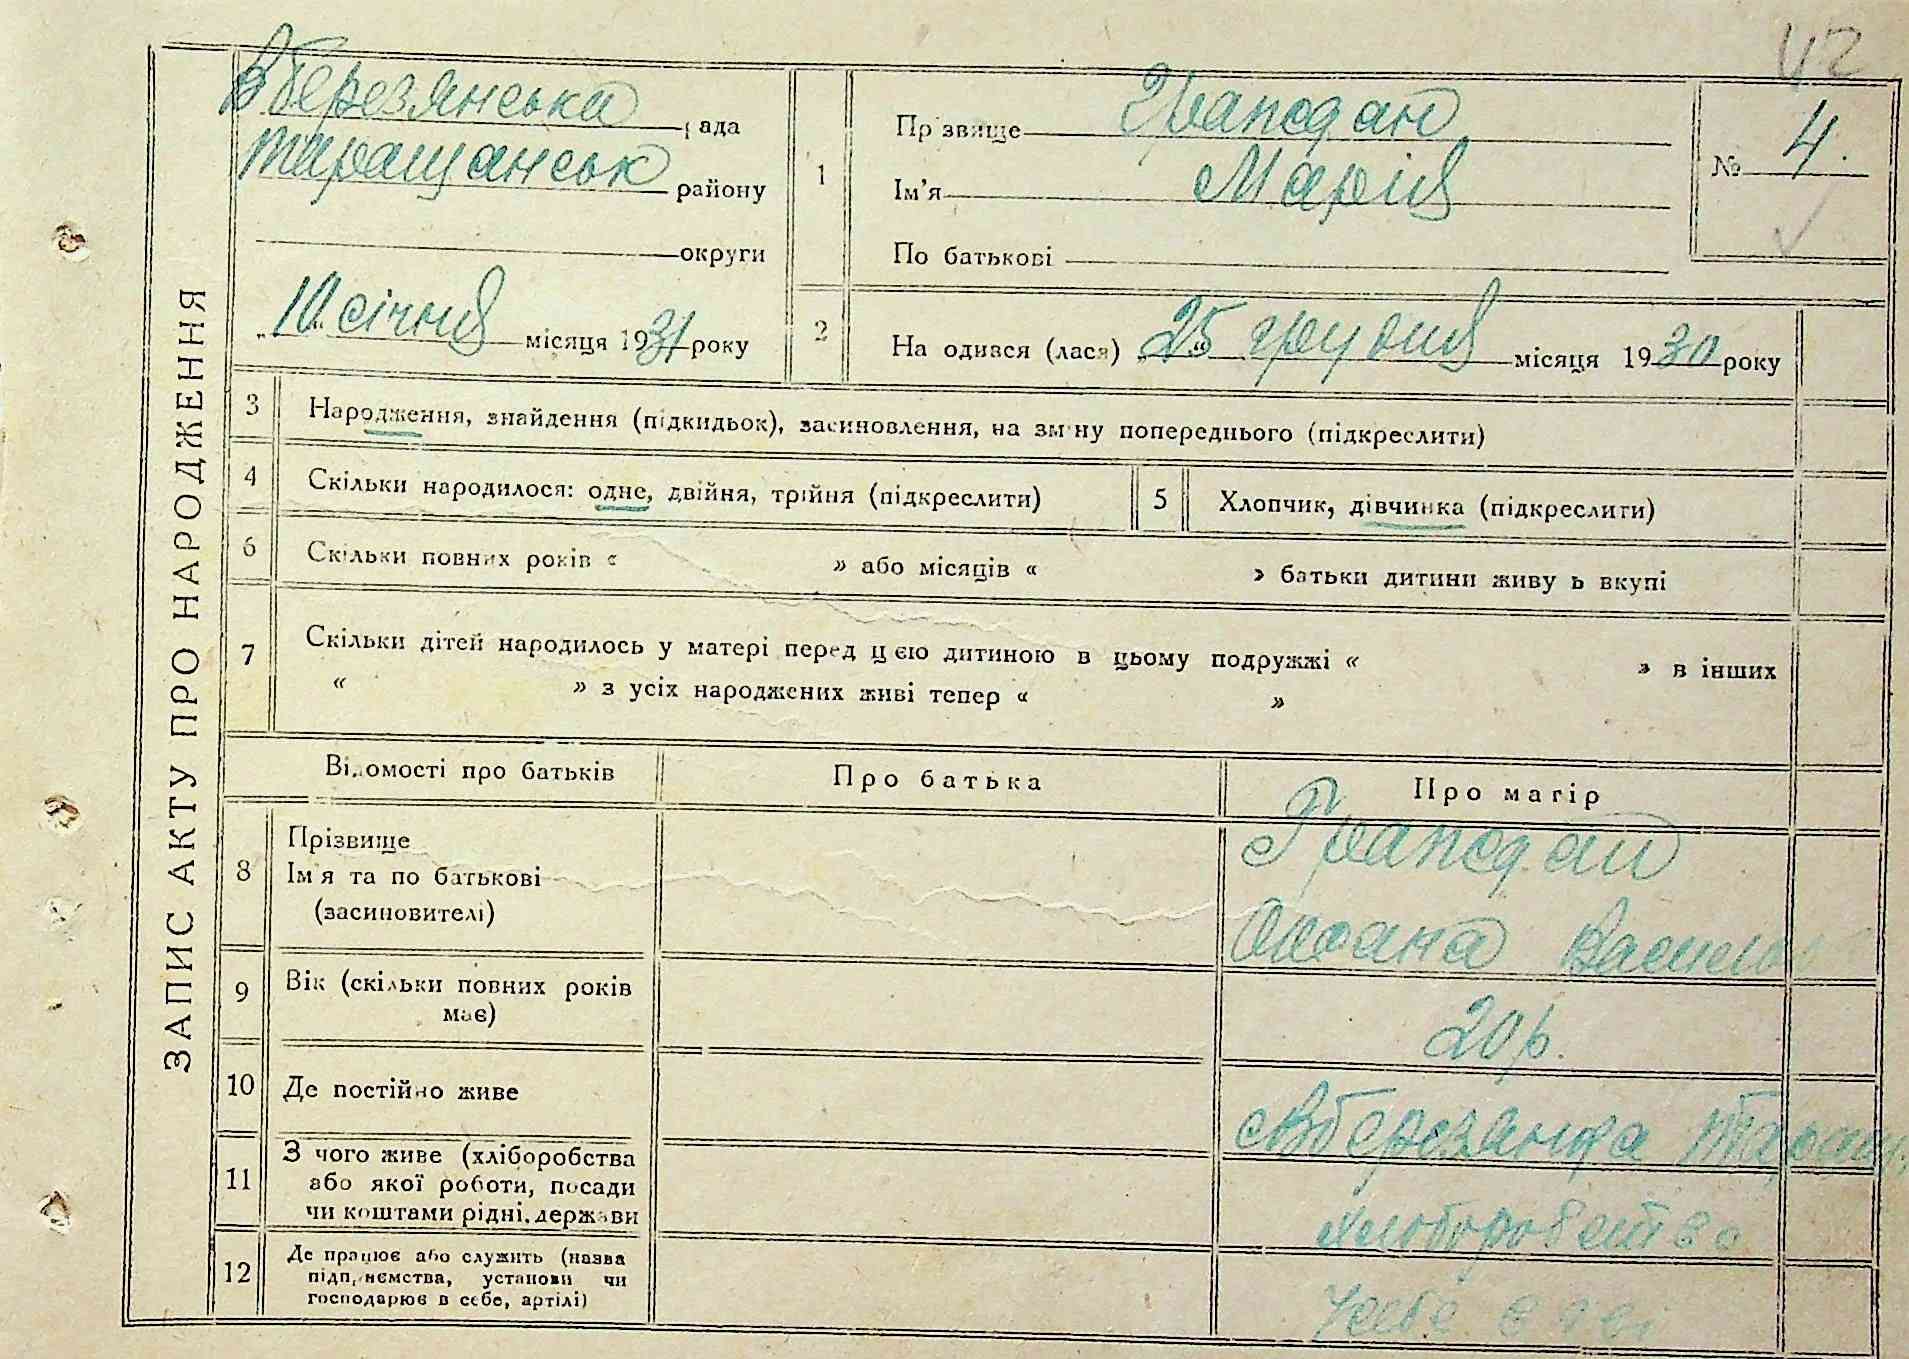 42
ЗАПИС АКТУ ПРО НАРОДЖЕННЯ
Вберезянська рада
Таращанськ району
округи
„10“ січня місяця 1931 року
1
Прізвище Грапсдан
Ім'я Марія
По батькові
№ 4.
2
Народився (лася) „25“ грудня місяця 1930 року
3 Народження, знайдення (підкидьок), засиновлення, на зміну попереднього (підкреслити)
4 Скільки народилося: одне, двійня, трійня (підкреслити)
5 Хлопчик, дівчинка (підкреслити)
6 Скільки повних років « » або місяців « » батьки дитини живуть вкупі
7 Скільки дітей народилось у матері перед цією дитиною в цьому подружжі « » в інших
« » з усіх народжених живі тепер « »
Відомості про батьків Про батька Про матір
8 Прізвище
Ім'я та по батькові
(засиновителі)
Грапсдан
Оксана
9 Вік (скільки повних років
має)
20 р.
10 Де постійно живе
с Вберезянка
11 З чого живе (хліборобства
або якої роботи, посади
чи коштами рідні, держави
хліборобство
12 Де працює або служить (назва
підприємства, установи чи
господарює в себе, артілі)